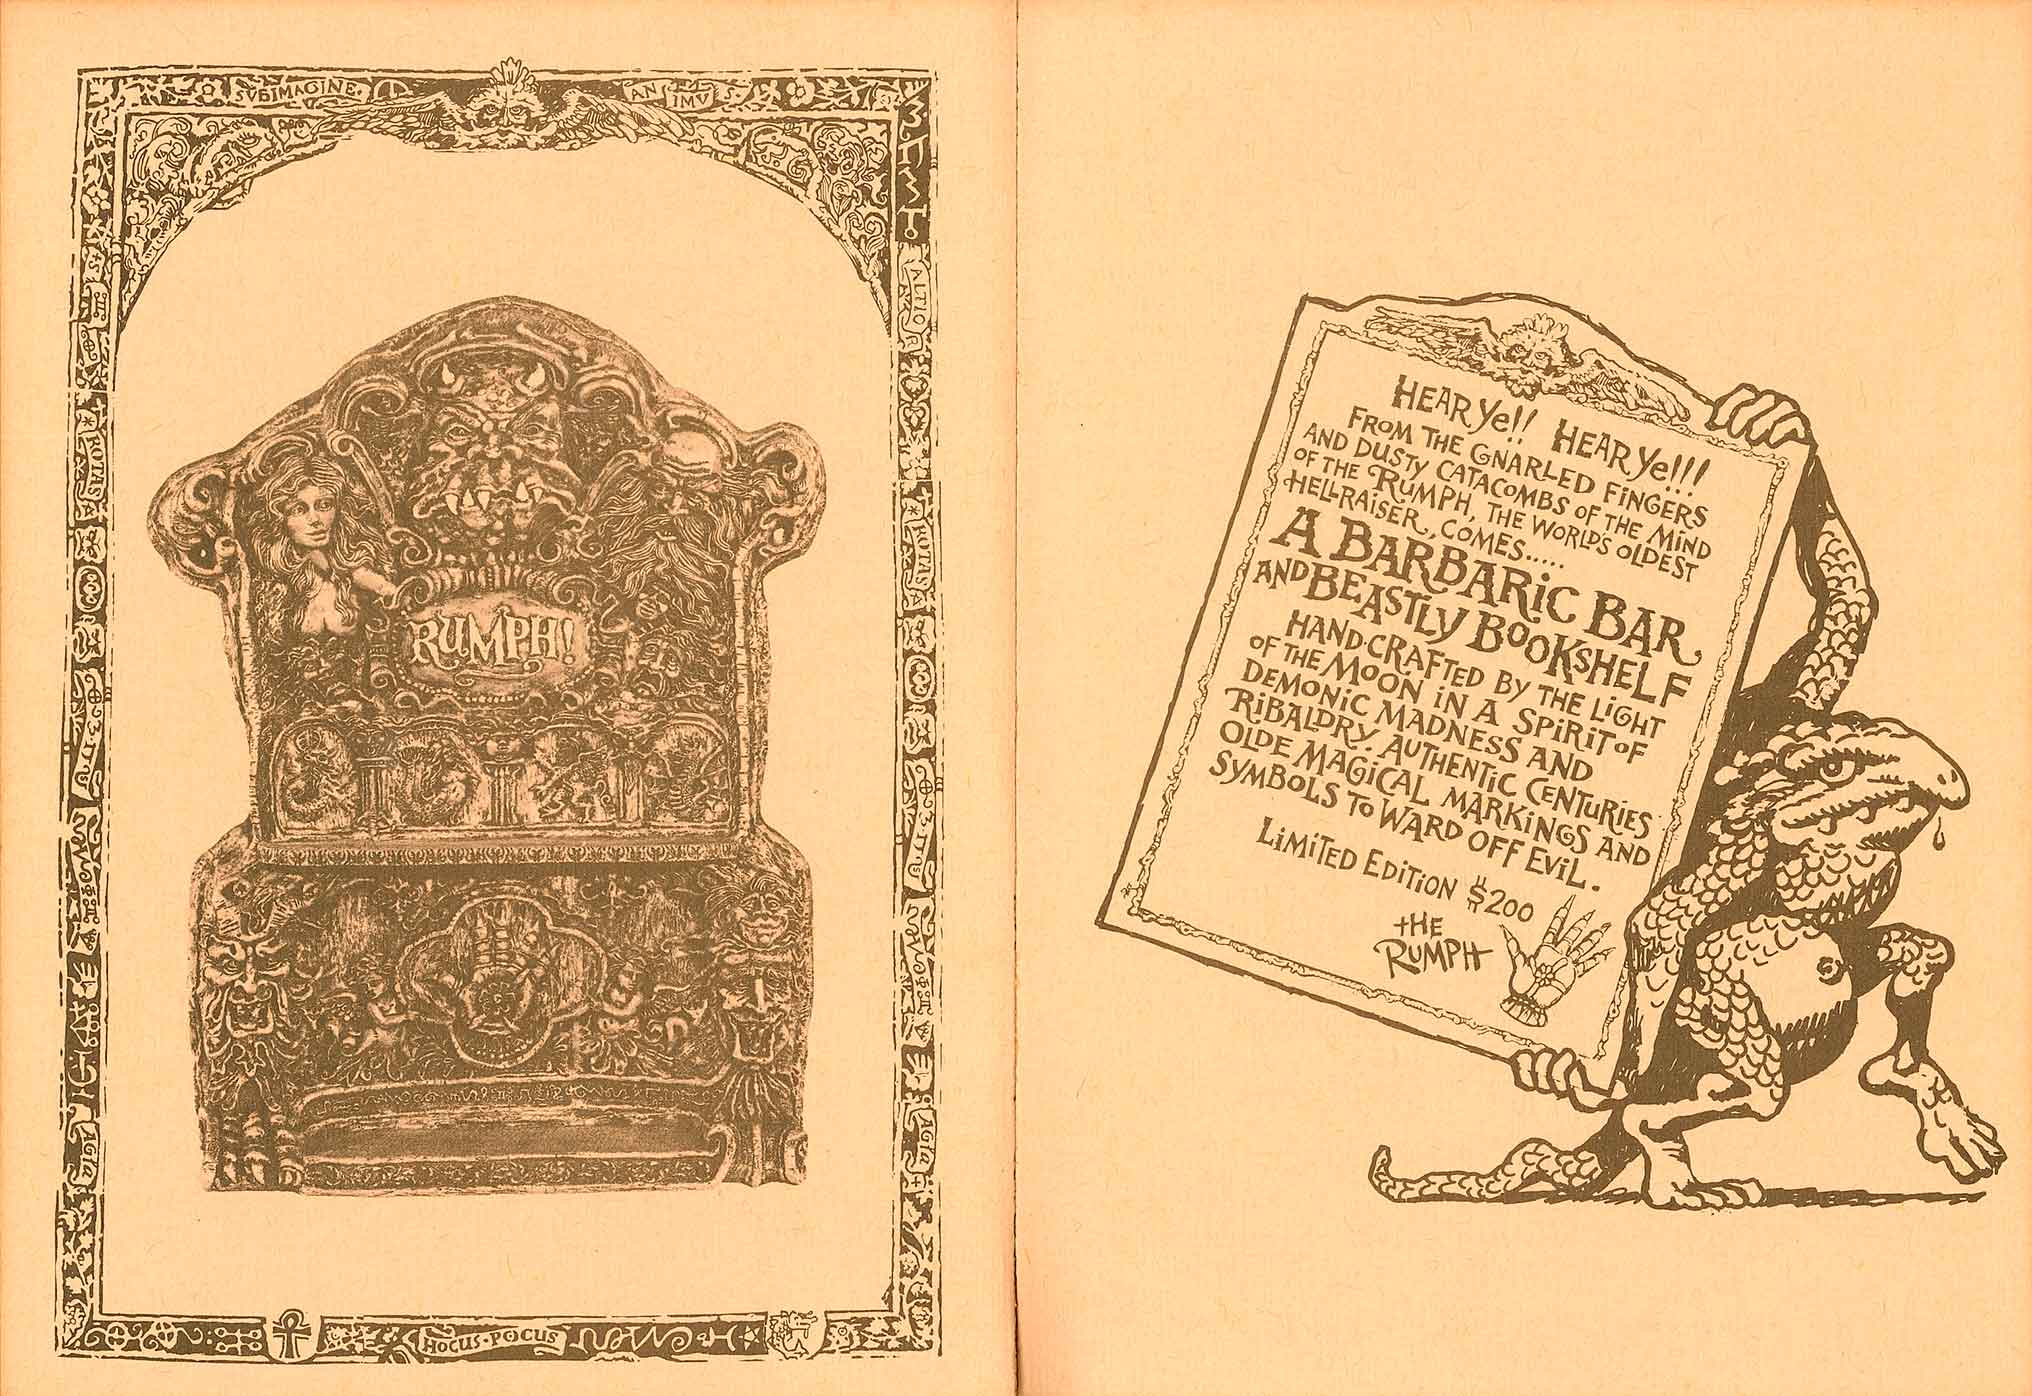 SVBIMAGINE.
ANIMVS
ALTIOR
*ROTASA
*ROTASA
AGLA
AGLA+
RUMPH!
HOCUS·POCUS
HEAR Ye!! HEAR Ye!!!
FROM THE GNARLED FINGERS
AND DUSTY CATACOMBS OF THE MIND
OF THE RUMPH, THE WORLD'S OLDEST
HELLRAISER, COMES.....
A BARBARIC BAR
AND BEASTLY BOOKSHELF
HAND-CRAFTED BY THE LIGHT
OF THE MOON IN A SPIRIT OF
DEMONIC MADNESS AND
RIBALDRY. AUTHENTIC CENTURIES
OLDE MAGICAL MARKINGS AND
SYMBOLS TO WARD OFF EVIL.
LIMITED EDITION $200
THE
RUMPH